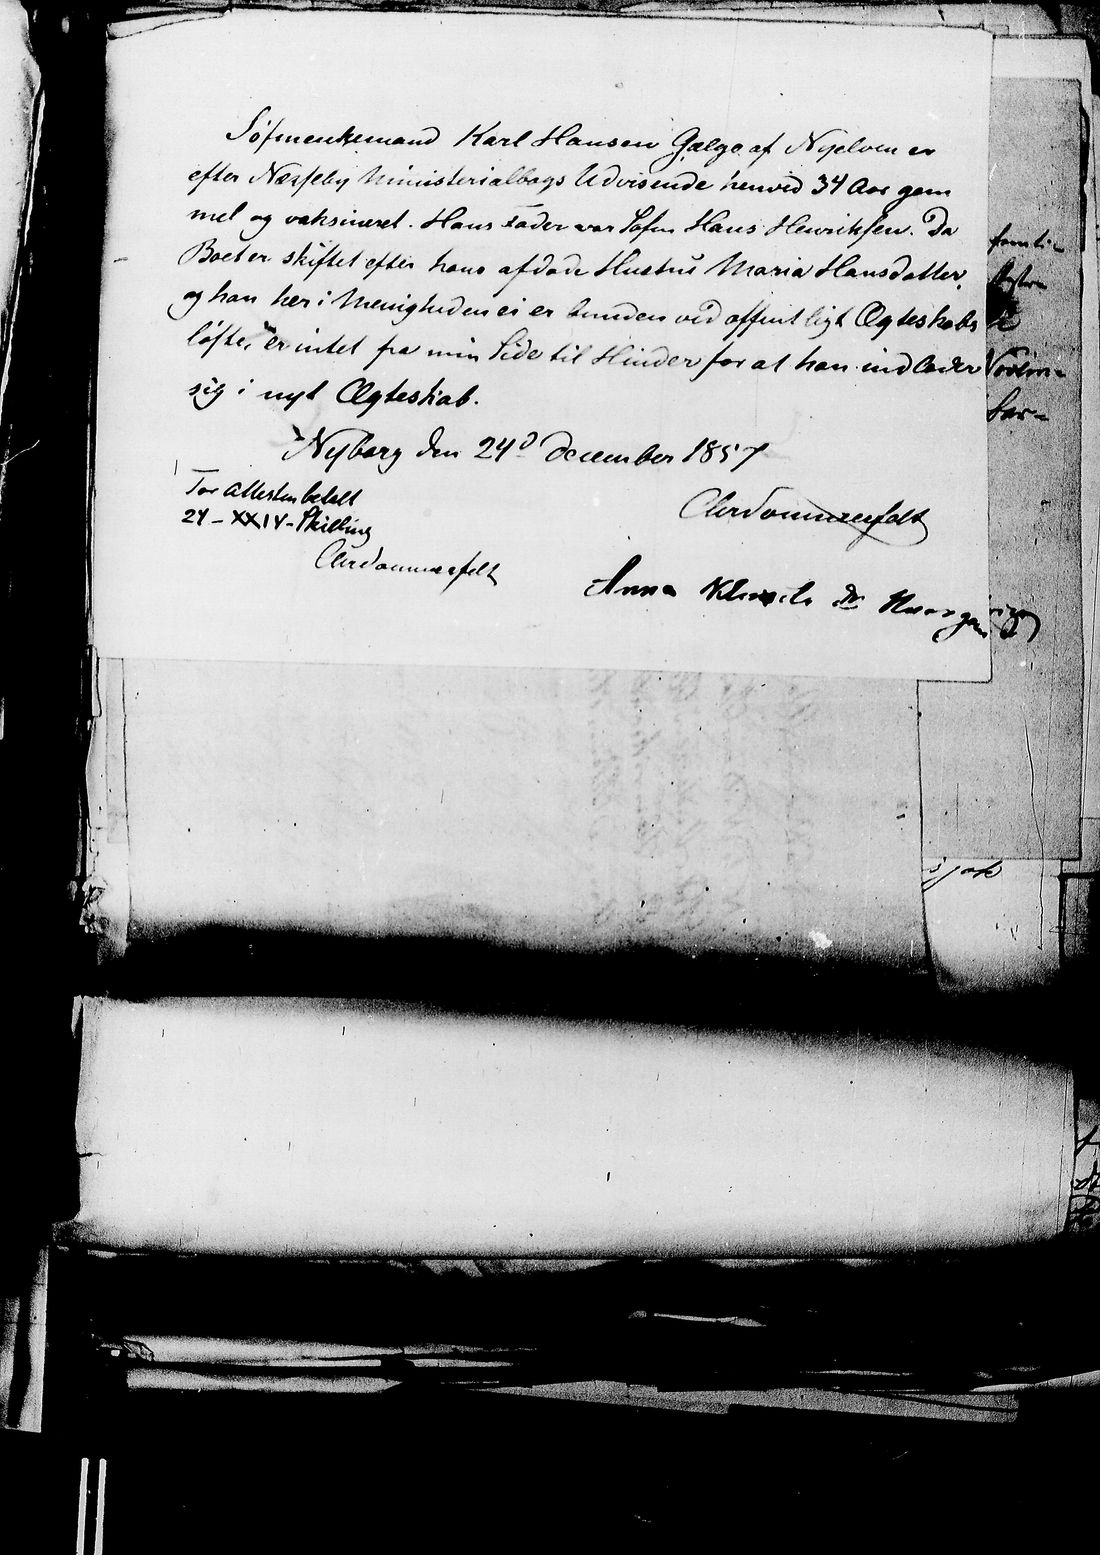 Søfinenkemand Karl Hansen Gælge af Nyelven er
efter Næsseby Ministerialbogs Udvisende henved 34 Aar gam
mel og vaksineret. Hans Fader var Søfin Hans Henriksen. Da
Boet er skiftet efter hans afdøde Hustru Maria Hansdatter,
og han her i Menigheden ei er bunden ved offentligt Ægteskabs
løfte, er intet fra min Side til Hinder for at han indlader
sig i nyt Ægteskab.
Nyborg den 24d December 1857
For Attesten betalt
24 - XXIV - Skilling
Anna